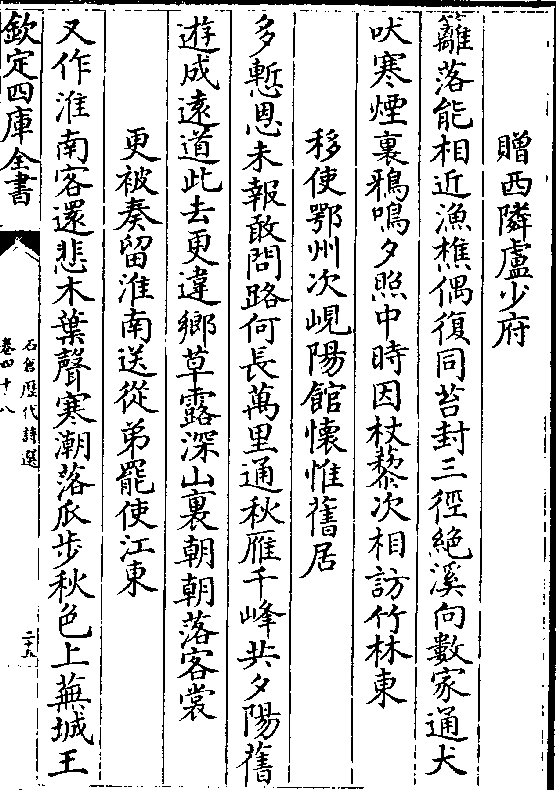 贈西隣盧少府
籬落能相近漁樵偶復同苔封三徑絶溪向數家通犬
吠寒煙裏鴉鳴夕照中時因杖藜次相訪竹林東
移使鄂州次峴陽館懷惟舊居
多慙恩未報敢問路何長萬里通秋雁千峰共夕陽舊
遊成遠道此去更違鄉草露深山裏朝朝落客裳
更被奏留淮南送從弟罷使江東
又作淮南客還悲木葉聲寒潮落瓜步秋色上蕪城王
欽定四庫全書
石倉歷代詩選
卷四十八
二十五